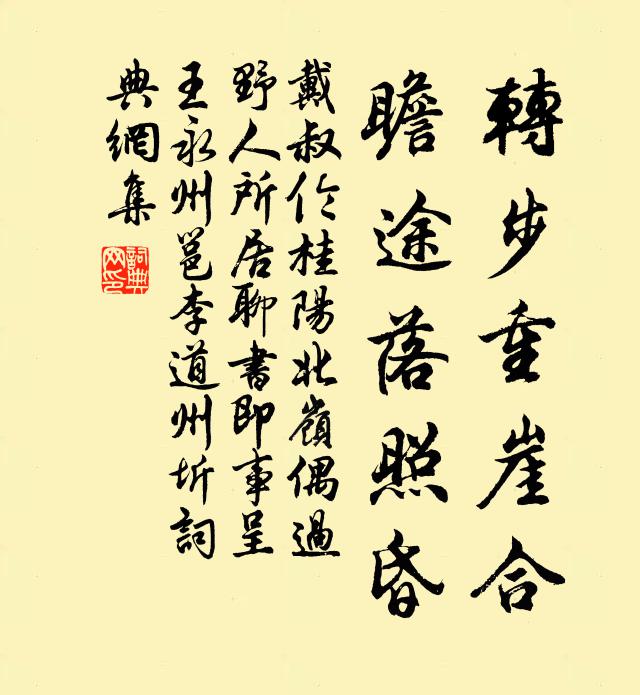 轉步重崖合
瞻途落照昏
戴叔伦桂陽北嶺偶過
野人所居聊書即事呈
王永州邕李道州圻詞
典網集
詞典
网印